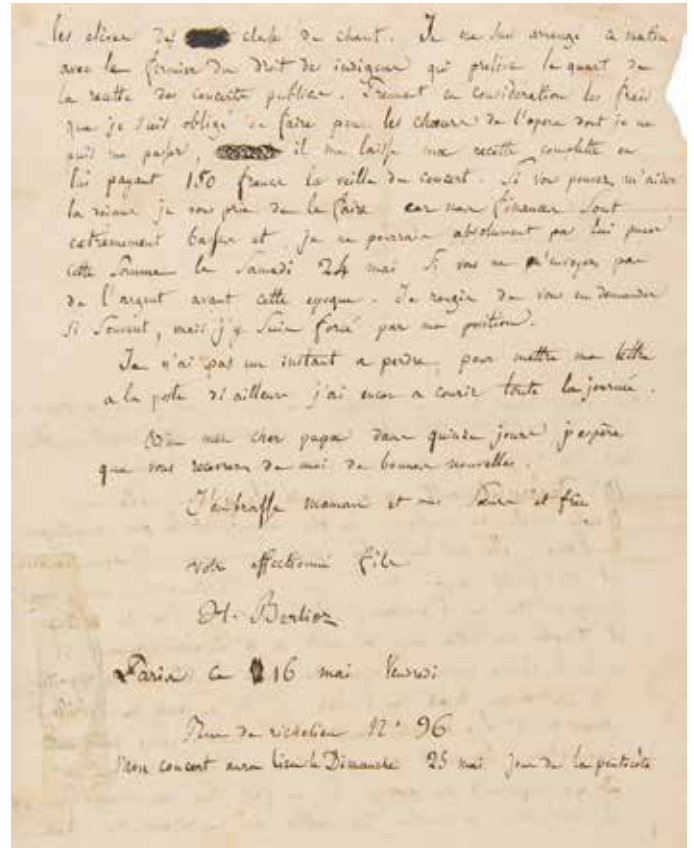 les élèves des classes de chant. Je me suis arrangé ce matin
avec le fermier du droit des indigens qui prélève le quart de
la recette des concerts publics. Prenant en consideration les frais
que je suis obligé de faire pour les chœurs de l'opera dont je ne
puis me passer, il me laisse ma recette complette en
lui payant 150 francs la veille du concert. Si vous pouvez m'aider
je vous prie de le faire car mes finances sont
extrêmement basses et je ne pourrais absolument pas lui
cette somme le Samedi 24 mai si vous ne m'envoyez pas
de l'argent avant cette epoque. Je rougis de vous en demander
si souvent, mais j'y suis forcé par ma position.
Je n'ai pas un instant a perdre pour mettre ma lettre
a la poste d'ailleurs j'ai encor a courir toute la journée.
Adieu mon cher papa dans quinze jours j'espère
que vous recevrez de moi de bonnes nouvelles.
J'embrasse maman et mes sœurs et frère
votre affectionné fils
H. Berlioz
Paris ce 16 mai Vendredi
Rue de richelieu N° 96
Mon concert aura lieu le Dimanche 25 mai jour de la pentecôte